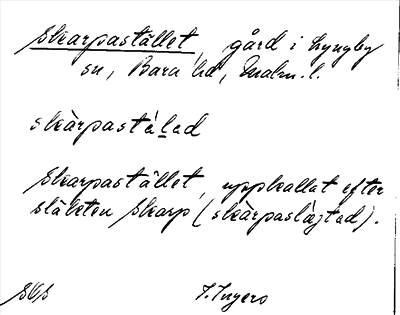 Skarpastället, gård i Lyngby
sn, Bara hd, Malm. l.
skàrpastá̀lad
Skarpastället, uppkallat efter
släkten Skarp (skàrpaslä̀jtad).
SOS I. Ingers